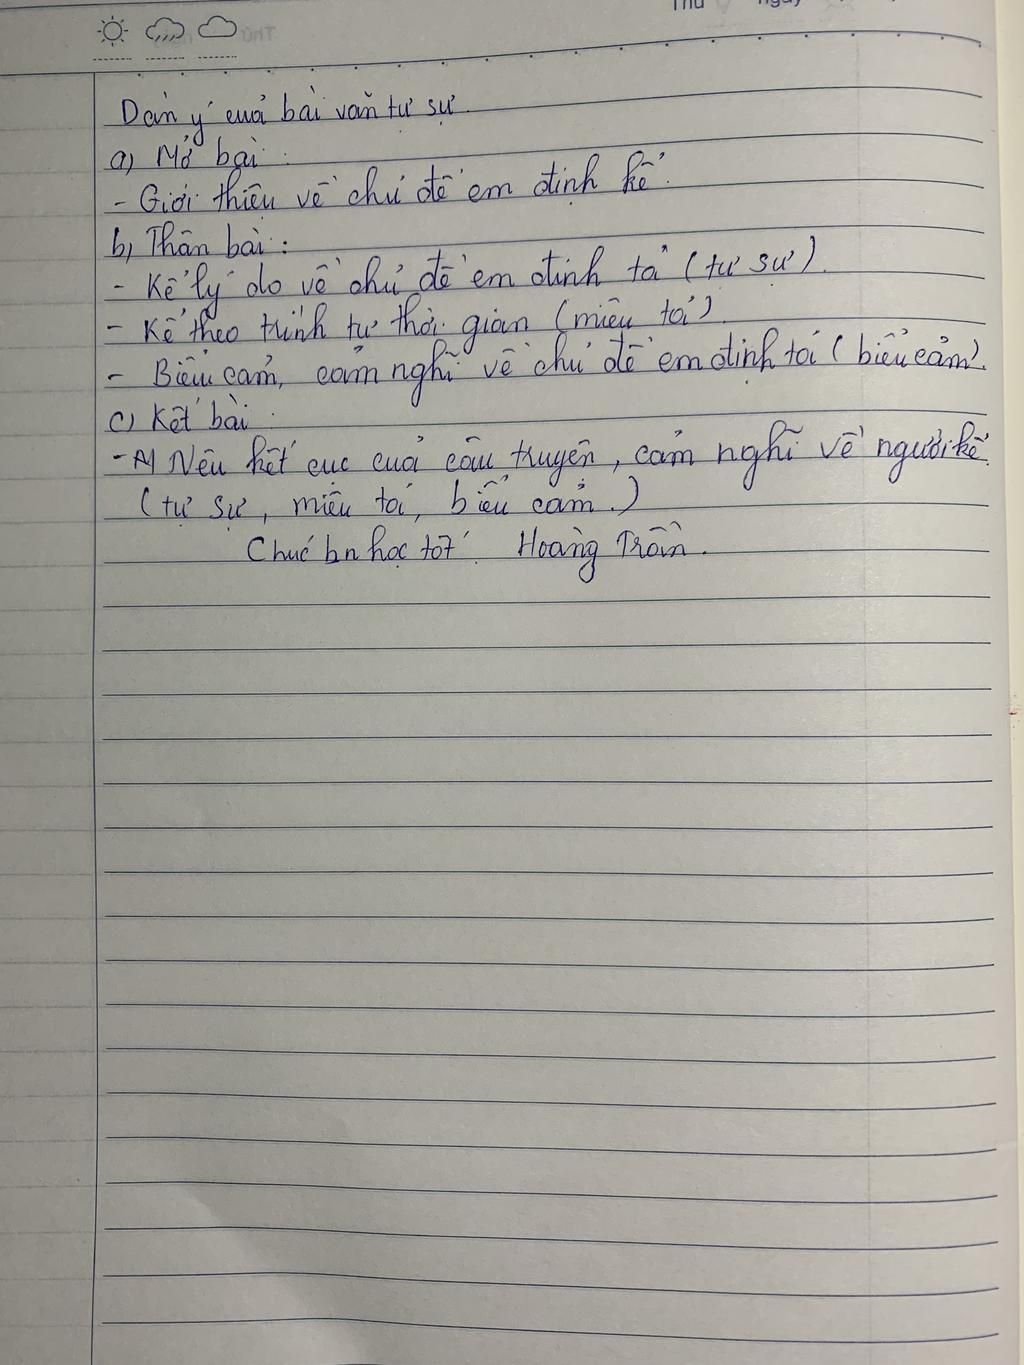 Thứ ngày
Dàn ý của bài văn tự sự.
a) Mở bài:
- Giới thiệu về chủ đề em định kể.
b) Thân bài:
- Kể lý do về chủ đề em định tả (tự sự).
- Kể theo trình tự thời gian (miêu tả).
- Biểu cảm, cảm nghĩ về chủ đề em định tả (biểu cảm).
c) Kết bài:
- Nêu kết cục của câu truyện, cảm nghĩ về người kể.
(tự sự, miêu tả, biểu cảm.)
Chúc bn học tốt. Hoàng Trần.